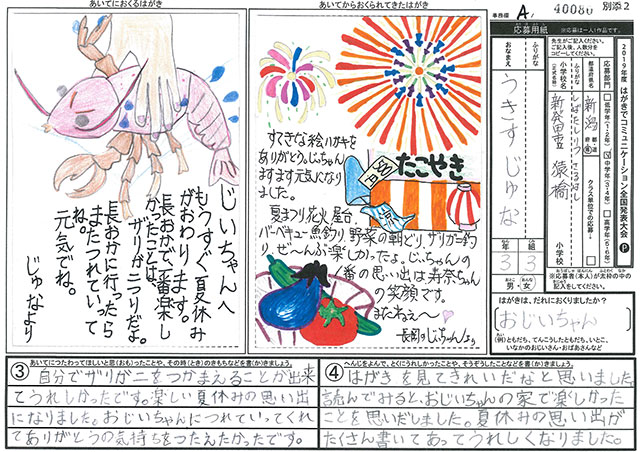 あいてにおくるはがき
じいちゃんへ
もうすぐ夏休み
がおわります。
長おかで一番楽し
かったことは、
ザリガニつりだよ。
長おかに行ったら
またつれていって
ね。
元気でね。
じゅなより
あいてからおくられてきたはがき
すてきな絵ハガキを
ありがとう。じいちゃん
ますます元気になり
ました。
たこやき
夏まつり花火 屋台
バーベキュー魚釣り 野菜の朝どり ザリガニ釣
り、ぜ〜んぶ楽しかったよ。じいちゃんの
一番の思い出は寿奈ちゃん
の笑顔です。
またねぇ〜
長岡のじいちゃんより
事務標 A. 40080 別添2
応募用紙
※応募は一人1作品です。
先生がご記入ください。
ご記入後、人数分を
コピーしてください。
2019年度 はがきでコミュニケーション全国発表大会
応募部門
低学年(1・2年)
中学年(3・4年)
高学年(5・6年)
都道府県名
新潟
小学校名
新発田市立 猿橋
小学校
クラス単位での応募
ふりがな
おなまえ
うきす じゅな
3年
3組
男・女
※応募者(本人)が太枠の中の
記入をしてください。
はがきは、だれにおくりましたか?
おじいちゃん
(例)ともだち、てんこうしたともだち、いとこ、
いなかのおじいさん・おばあさんなど
③ あいてにつたわってほしいと思(おも)ったことや、その時(とき)のきもちなどを書(か)きましょう。
自分でザリガニをつかまえることが出来
てうれしかったです。楽しい夏休みの思い出
になりました。おじいちゃんにつれていってくれ
てありがとうの気持ちをつたえたかったです。
④ へんじをよんで、とくにうれしかったことや、そうぞうしたことなどを書(か)きましょう。
はがきを見てきれいだなと思いました。
読んでみると、おじいちゃんの家で楽しかった
ことを思いだしました。夏休みの思い出が
たくさん書いてあってうれしくなりました。